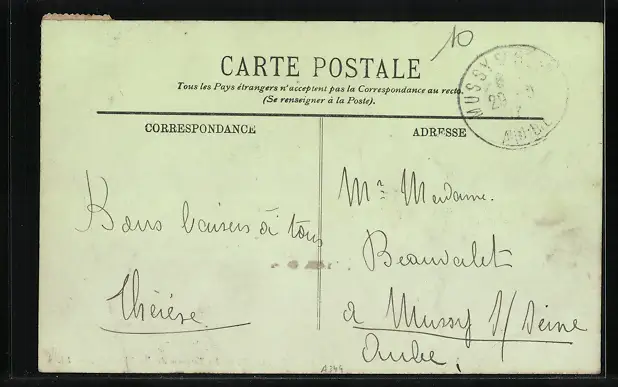 10
CARTE POSTALE
Tous les Pays étrangers n'acceptent pas la Correspondance au recto.
(Se renseigner à la Poste).
MUSSY S
29
AUBE
CORRESPONDANCE
ADRESSE
Bons baisers à tous
Thérèse
Mr Madame.
Beauvalet
a Mussy s/ Seine
Aube.
A344